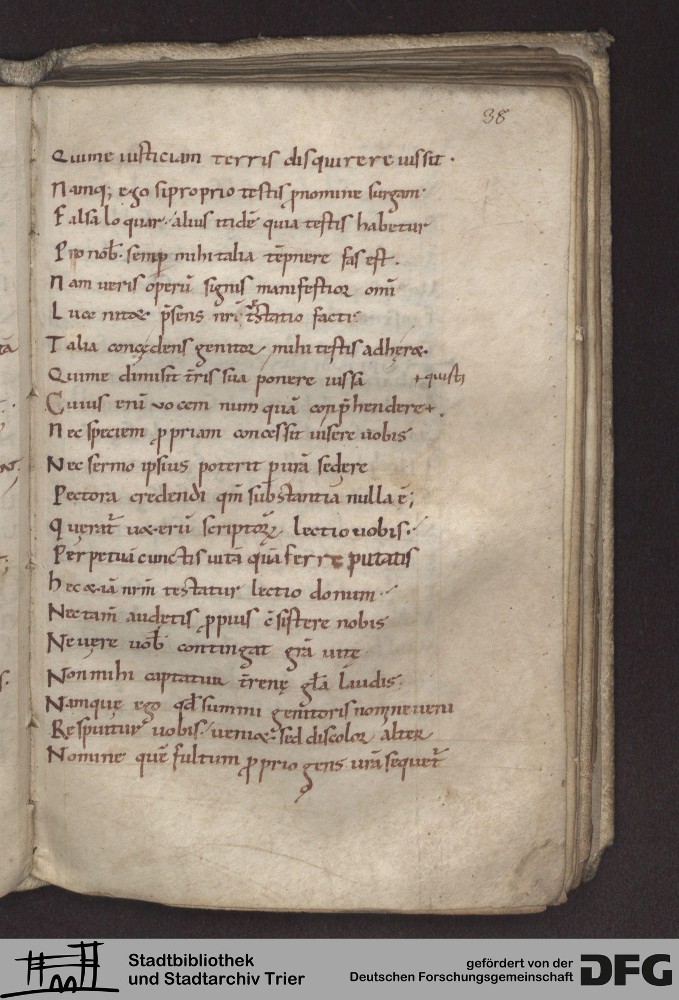 38
Quime iusticiam terris disquirere iussit.
Namq; ego si proprio testis p̱nomine surgam.
Falsa loquar. alius itidē quia testis habetur
Pro nob̄. semp̱ mihi talia tēpnere fas est.
Nam ueris operū signis manifestior omī
Luce nitæ p̄sens nr̄i t̄statio facti
Talia concędens genitor mihi testis adherę.
Quime dimisit t̄ris sua ponere iussa
+ quisti
Cuius enī uocem num quā conp̄hendere+.
Nec speciem p̱priam concessit uisere uobis
Nec sermo ipsius poterit p̱ urā sedere
Pectora credendi qm̄ substantia nulla ē;
Querat̄ uæerū scriptoꝝ lectio uobis.
Perpetuā cunctis uitā quā ferre putatis
Hec &iā nrm̄ testatur lectio donum.
Nec tam̄ audetis p̱pius c̄sistere nobis
Ne uere uob̄ contingat gr̄a uite
Non mihi captatur t̄renę gl̄a laudis.
Namque ego qd̄ summi genitoris nomne ueni
Respuitur uobis. ueniæ sed discolor alter
Nomine quē fultum p̱prio gens urā sequet̄
Stadtbibliothek
und Stadtarchiv Trier
gefördert von der
Deutschen Forschungsgemeinschaft
DFG